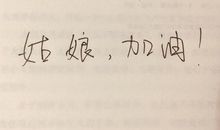 姑娘，加油！